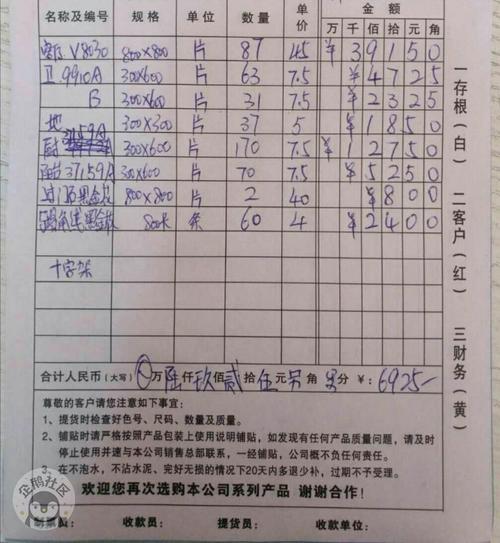 名称及编号 规格 单位 数量 单价 金额
万 千 佰 拾 元 角
客厅 V8030 800×800 片 87 45 ¥39150
卫 9910A 300×600 片 63 7.5 ¥4725
B 300×600 片 31 7.5 ¥2325
地 300×300 片 37 5 ¥1850
厨 3759A 300×600 片 170 7.5 ¥12750
37159A 300×600 片 70 7.5 ¥5250
过门石黑金 800×800 片 2 40 ¥800
黑金 800 条 60 4 ¥2400
十字架
合计人民币(大写) 万陆仟玖佰贰拾伍元 角 分 ¥:6925-
尊敬的客户请您注意如下事宜:
1、提货时检查好色号、尺码、数量及质量。
2、铺贴时请严格按照产品包装上使用说明铺贴,如发现有任何产品质量问题,请及时
停止使用并速与本公司销售总部联系,一经铺贴,公司概不负任何责任。
3、在不泡水,不沾水泥、完好无损的情况下20天内多退少补,过期不予受理。
欢迎您再次选购本公司系列产品 谢谢合作!
制票员: 收款员: 提货员: 收款单位:
一存根(白) 二客户(红) 三财务(黄)
企鹅社区